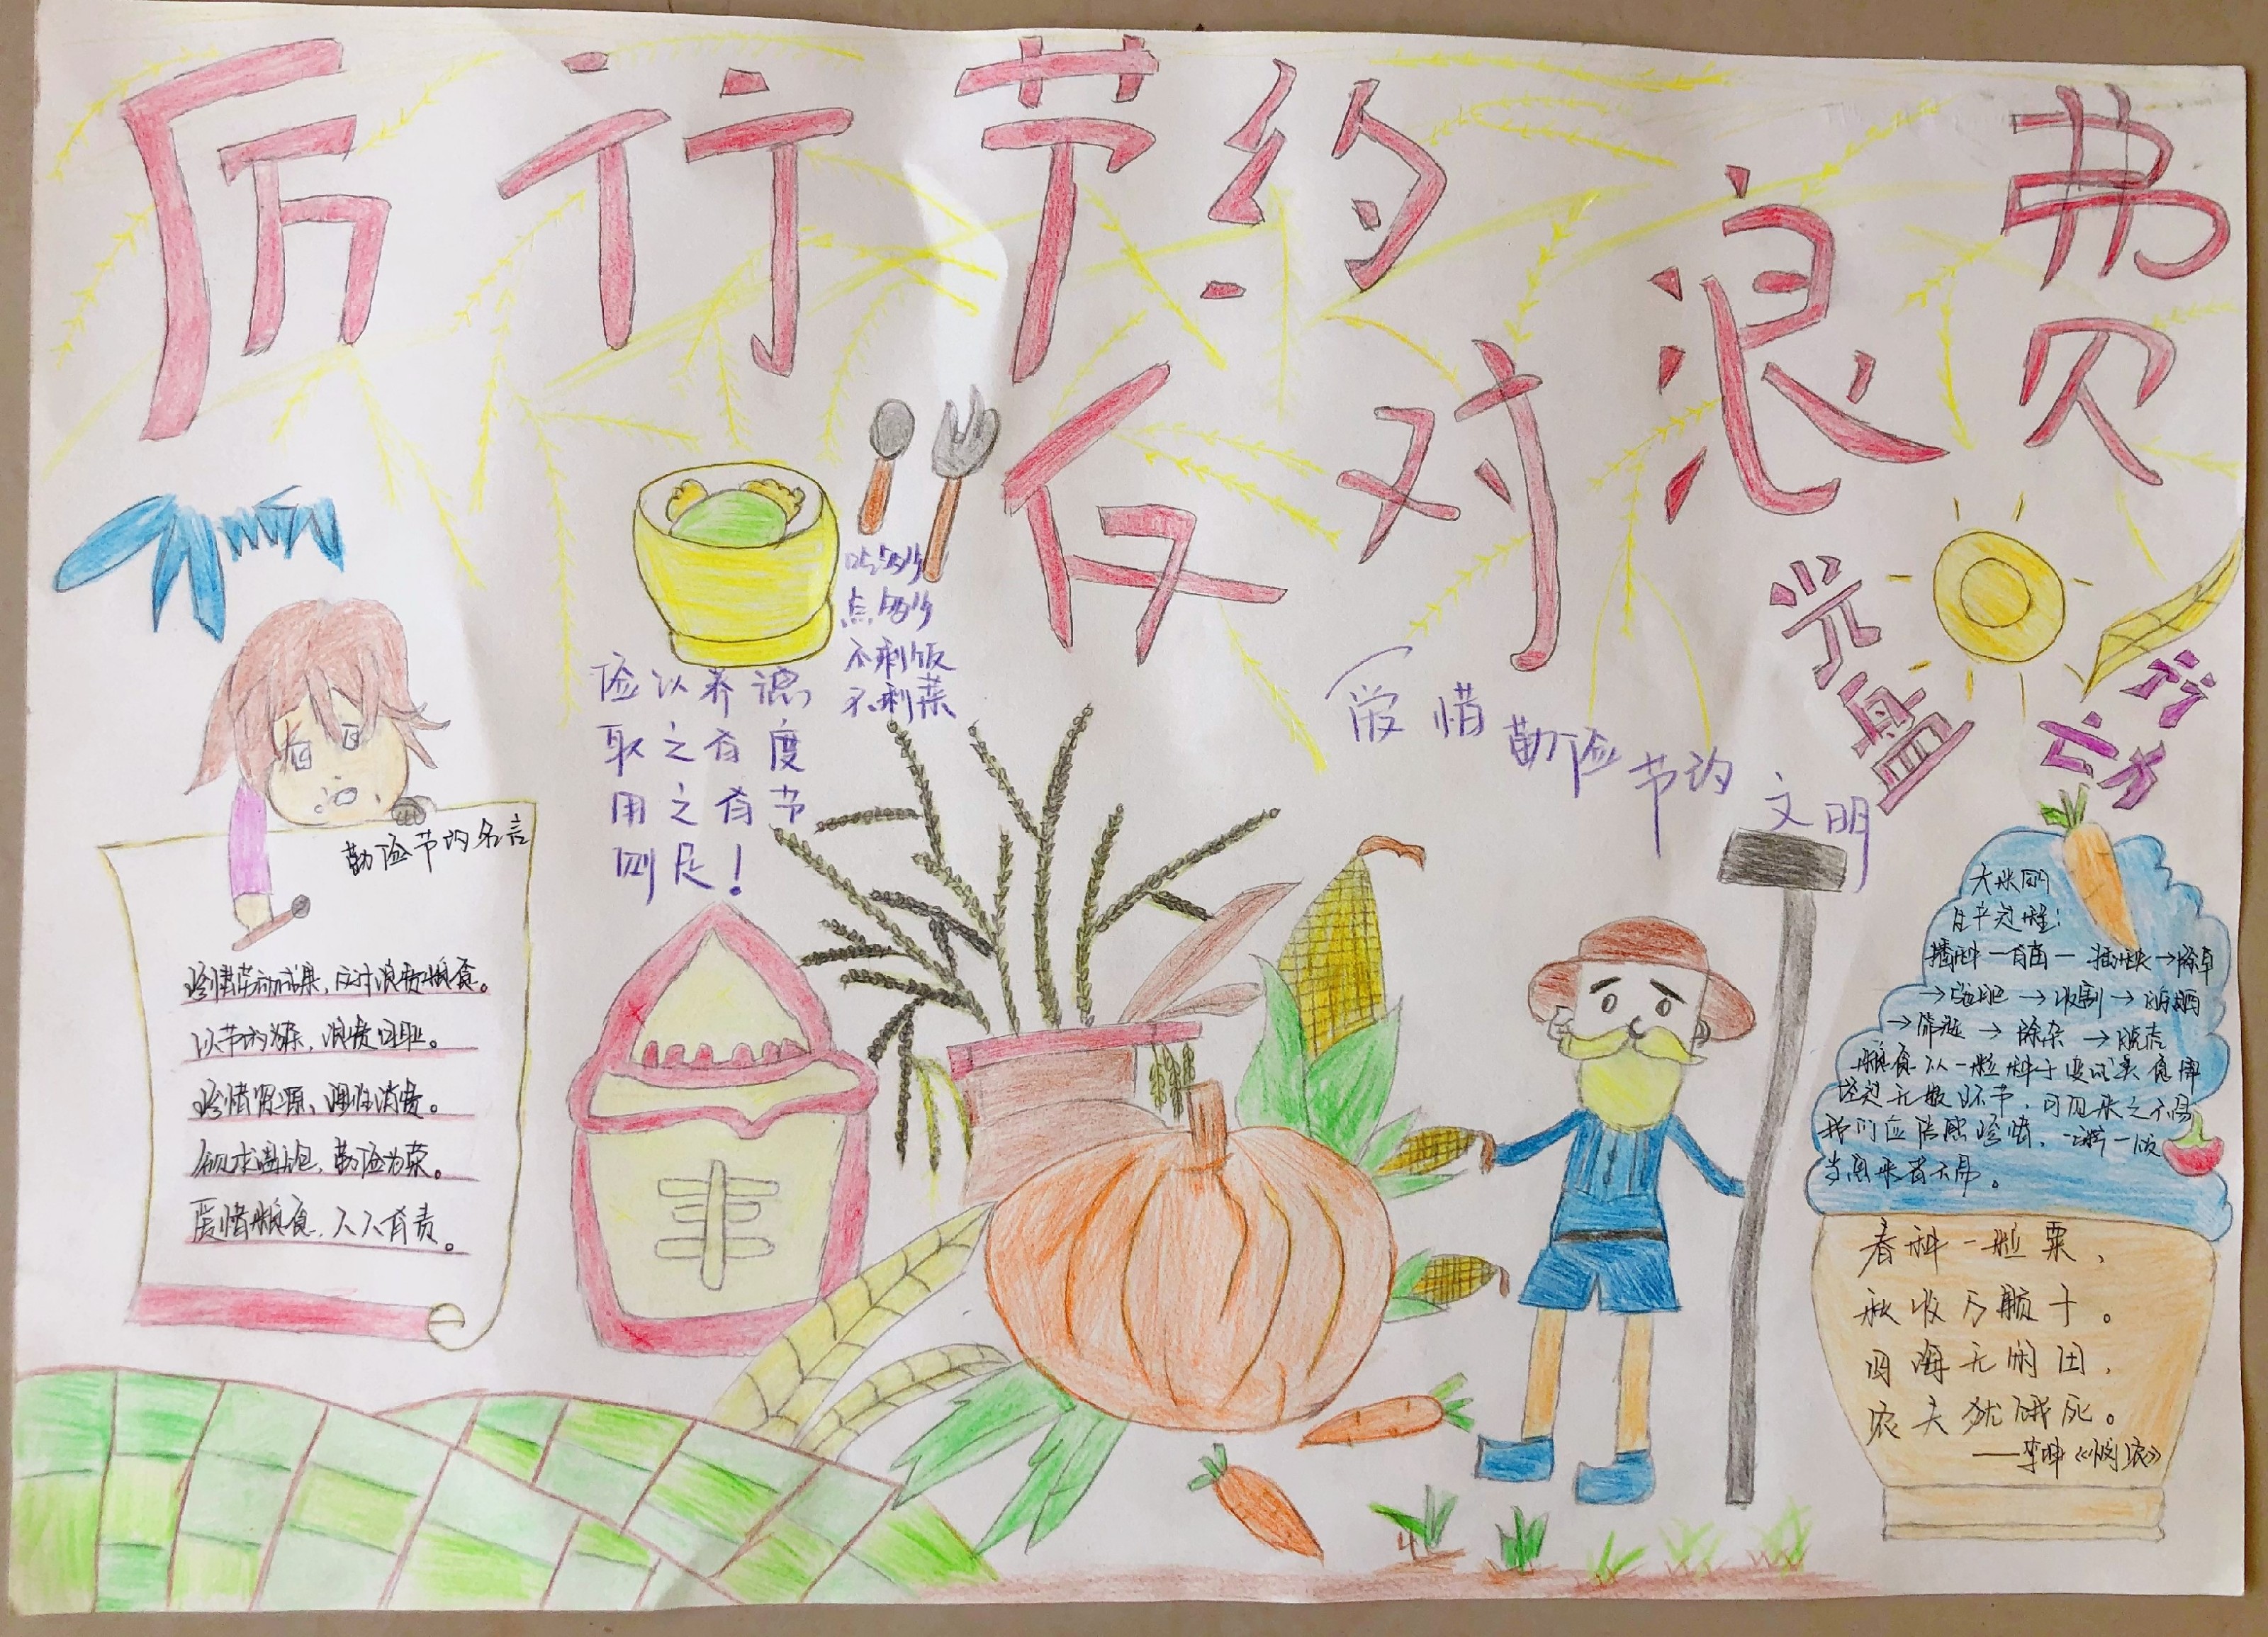 厉行节约
反对浪费
光盘
行动
吃多少
点多少
不剩饭
不剩菜
俭以养德
取之有度
用之有节
则足！
爱惜勤俭节约文明
勤俭节约名言
珍惜劳动成果，反对浪费粮食。
以节约为荣，浪费可耻。
珍惜资源，理性消费。
但求温饱，勤俭为荣。
爱惜粮食，人人有责。
丰
大米的
生产过程：
播种—育苗—插秧→除草
→施肥→收割→
→筛选→除杂→
粮食从一粒种子变成美食需
经过无数环节，可见来之不易
我们应该照珍惜，一粥一饭
当思来之不易。
春种一粒粟，
秋收万颗子。
四海无闲田，
农夫犹饿死。
——李绅《悯农》